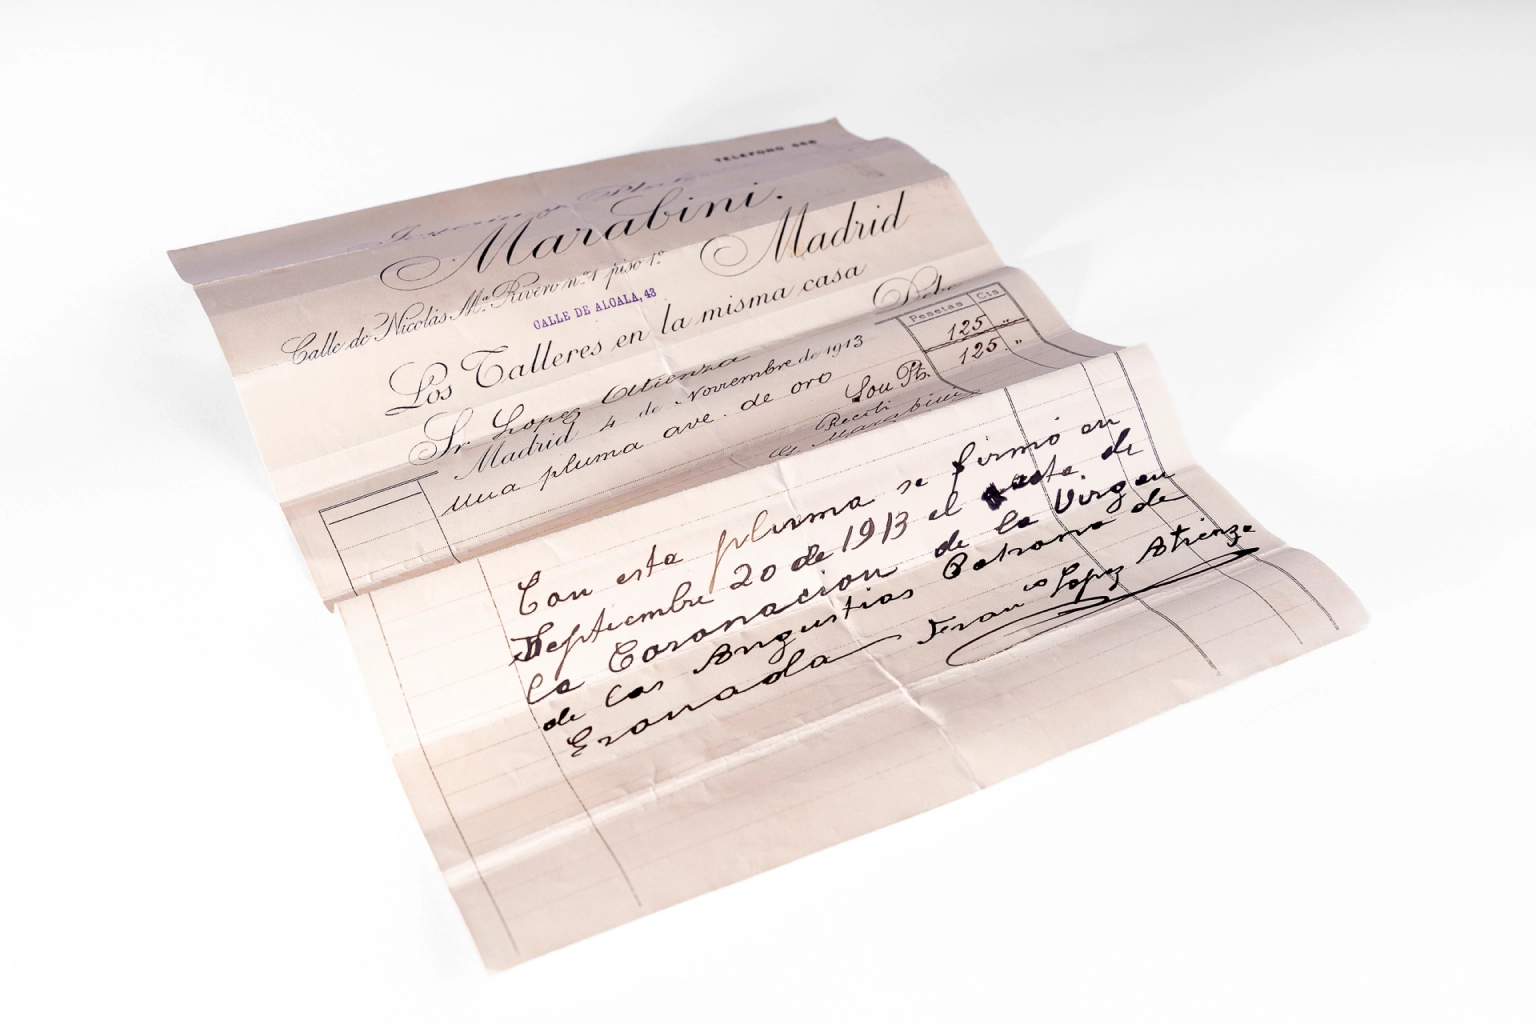 TELEFONO
Marabini.
Madrid
Calle de Nicolás Mª Rivero nº 1 piso 1º
CALLE DE ALCALA, 43
Los Talleres en la misma casa
Debe
Pesetas Cts
Sr. Lopez Atienza
Madrid 4 de Noviembre de 1913
una pluma ave de oro 125 "
Son Pts. 125 "
Recibi
Marabini
Con esta pluma se firmó en
Septiembre 20 de 1913 el acta de
la Coronacion de la Virgen
de las Angustias Patrona de
Granada Franco Lopez Atienza